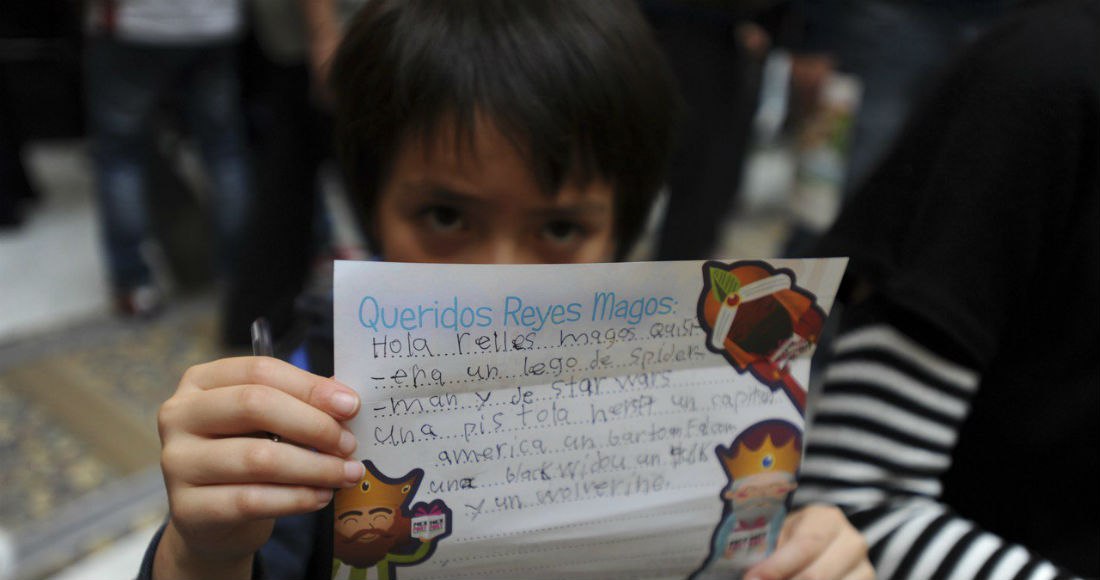 Queridos Reyes Magos:
Hola relles magos quisi
-ena un lego de spider
-man y de star wars
una pistola nerf un capitan
america un barton
una blackwidou un
y un wolverine.